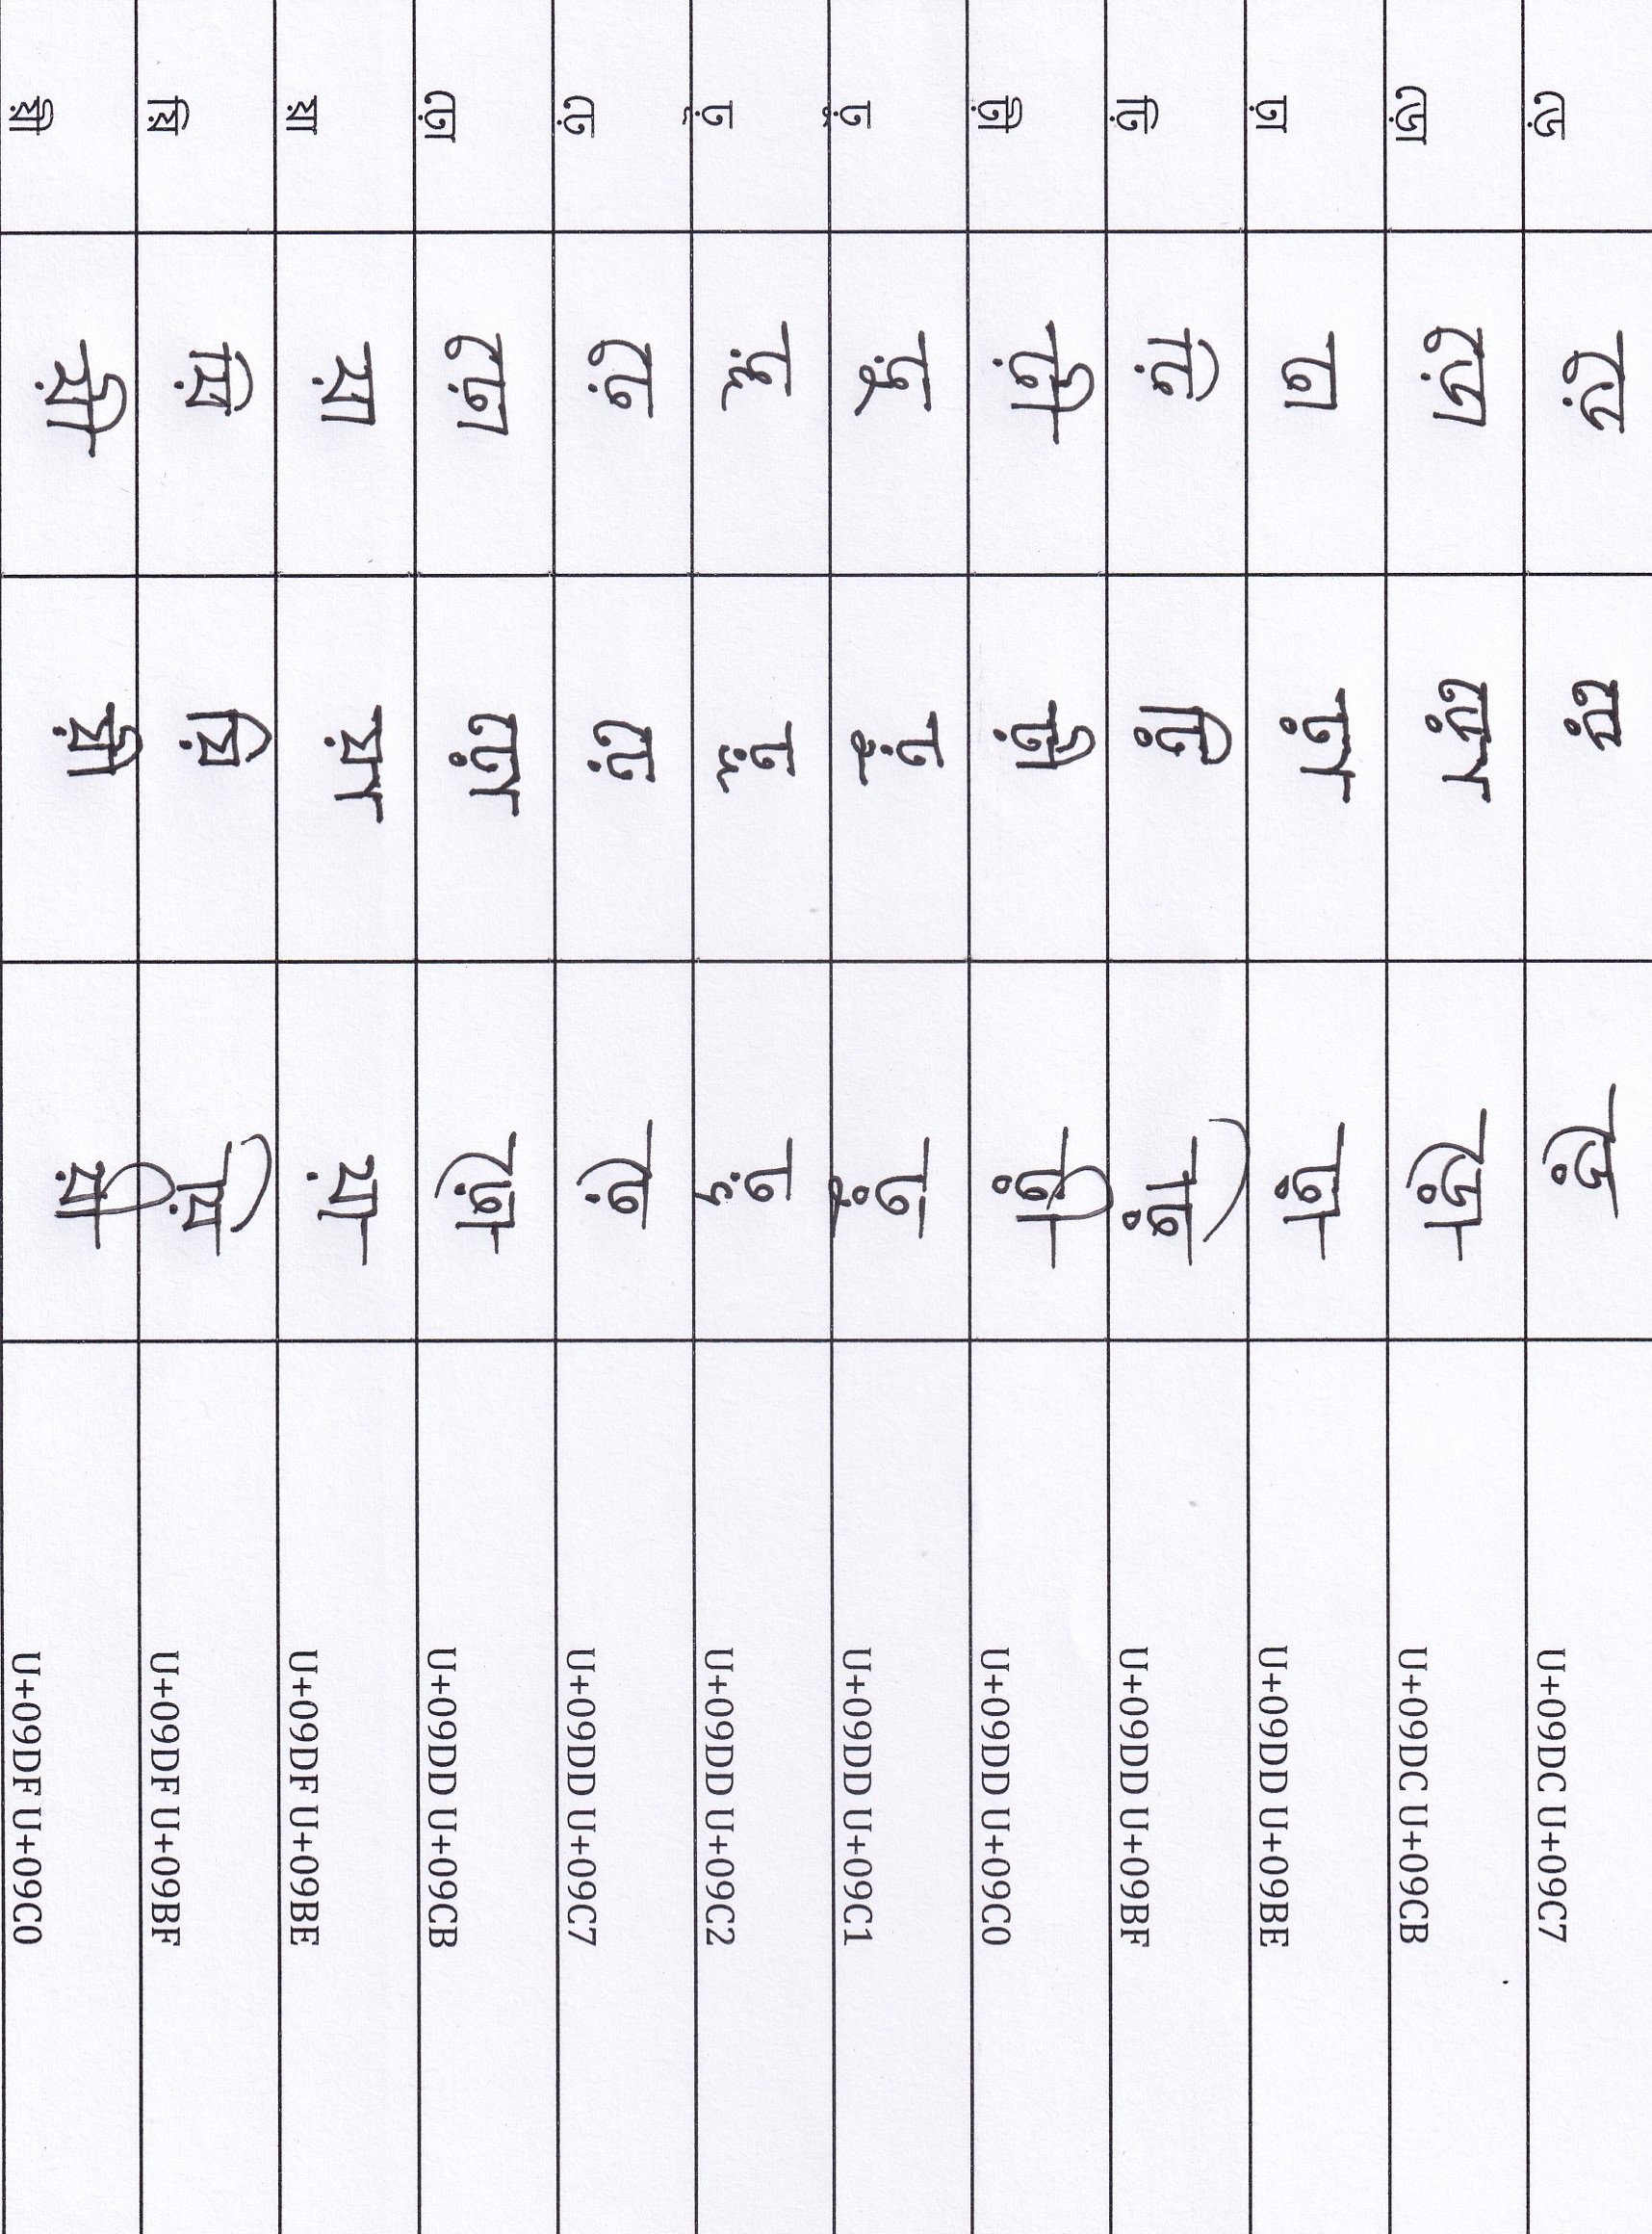 ড়ে ড়ে ড়ে ড়ে U+09DC U+09C7
ড়ো ড়ো ড়ো ড়ো U+09DC U+09CB
ঢ়া ঢা ঢ়া ঢ়া U+09DD U+09BE
ঢ়ি ঢ়ি ঢ়ি ঢ়ি U+09DD U+09BF
ঢ়ী ঢ়ী ঢ়ী ঢ়ী U+09DD U+09C0
ঢ়ু ঢ়ু ঢ়ু ঢ়ু U+09DD U+09C1
ঢ়ূ ঢ়ূ ঢ়ূ ঢ়ূ U+09DD U+09C2
ঢ়ে ঢ়ে ঢ়ে ঢ়ে U+09DD U+09C7
ঢ়ো ঢ়ো ঢ়ো ঢ়ো U+09DD U+09CB
য়া য়া য়া য়া U+09DF U+09BE
য়ি য়ি য়ি য়ি U+09DF U+09BF
য়ী য়ী য়ী য়ী U+09DF U+09C0